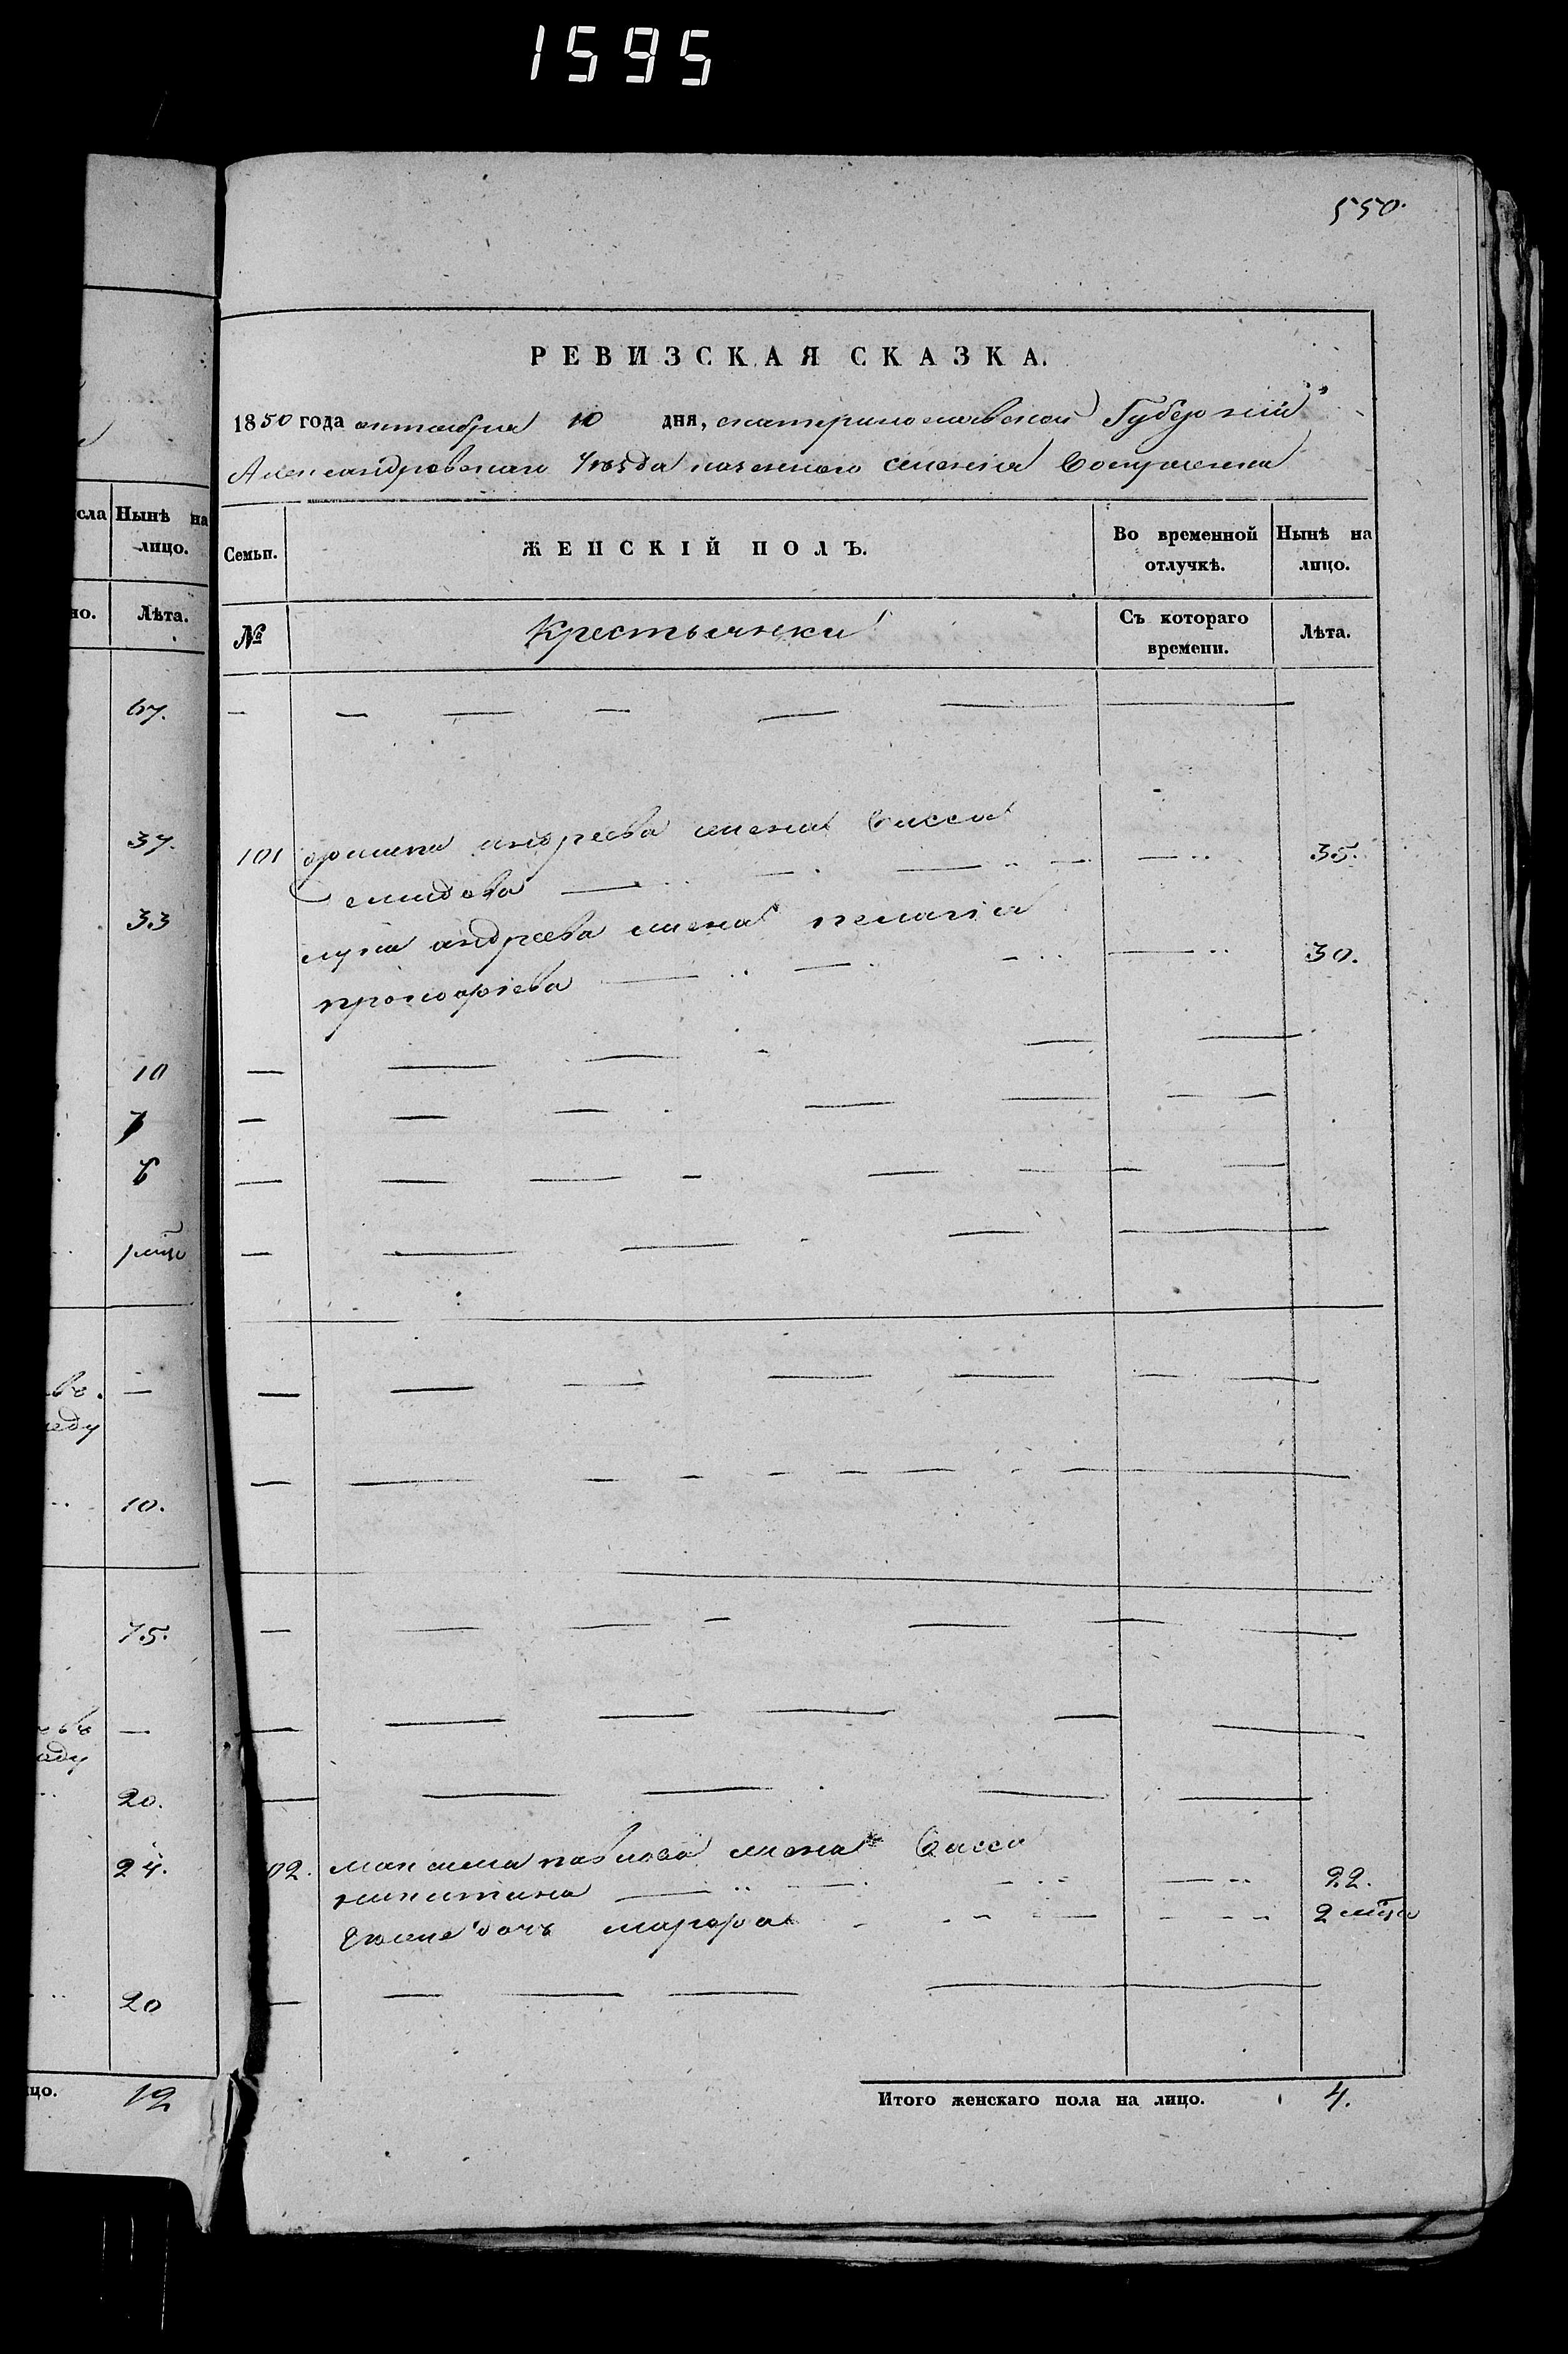 1595
550.
РЕВИЗСКАЯ СКАЗКА.
1850 года октября 10 дня, екатеринославской Губерніи
Александровскаго Уѣзда казенного селенія
сла
Нынѣ на
лицо.
но.
Лѣта.
Семьи.
ЖЕНСКІЙ ПОЛЪ.
Во временной
отлучкѣ.
Нынѣ на
лицо.
№
Крестьянки
Съ котораго
времени.
Лѣта.
67.
37.
33
10
7
6
—
10.
75.
—
20.
24.
20
101 фомина андреева жена васса
демидова 35.
луки андреева жена пелагія
прокофіева 30.
02. максима павлова жена васса
никитина 22.
Его дочь марфа 2 мѣся
цо. 12
Итого женскаго пола на лицо. 4.